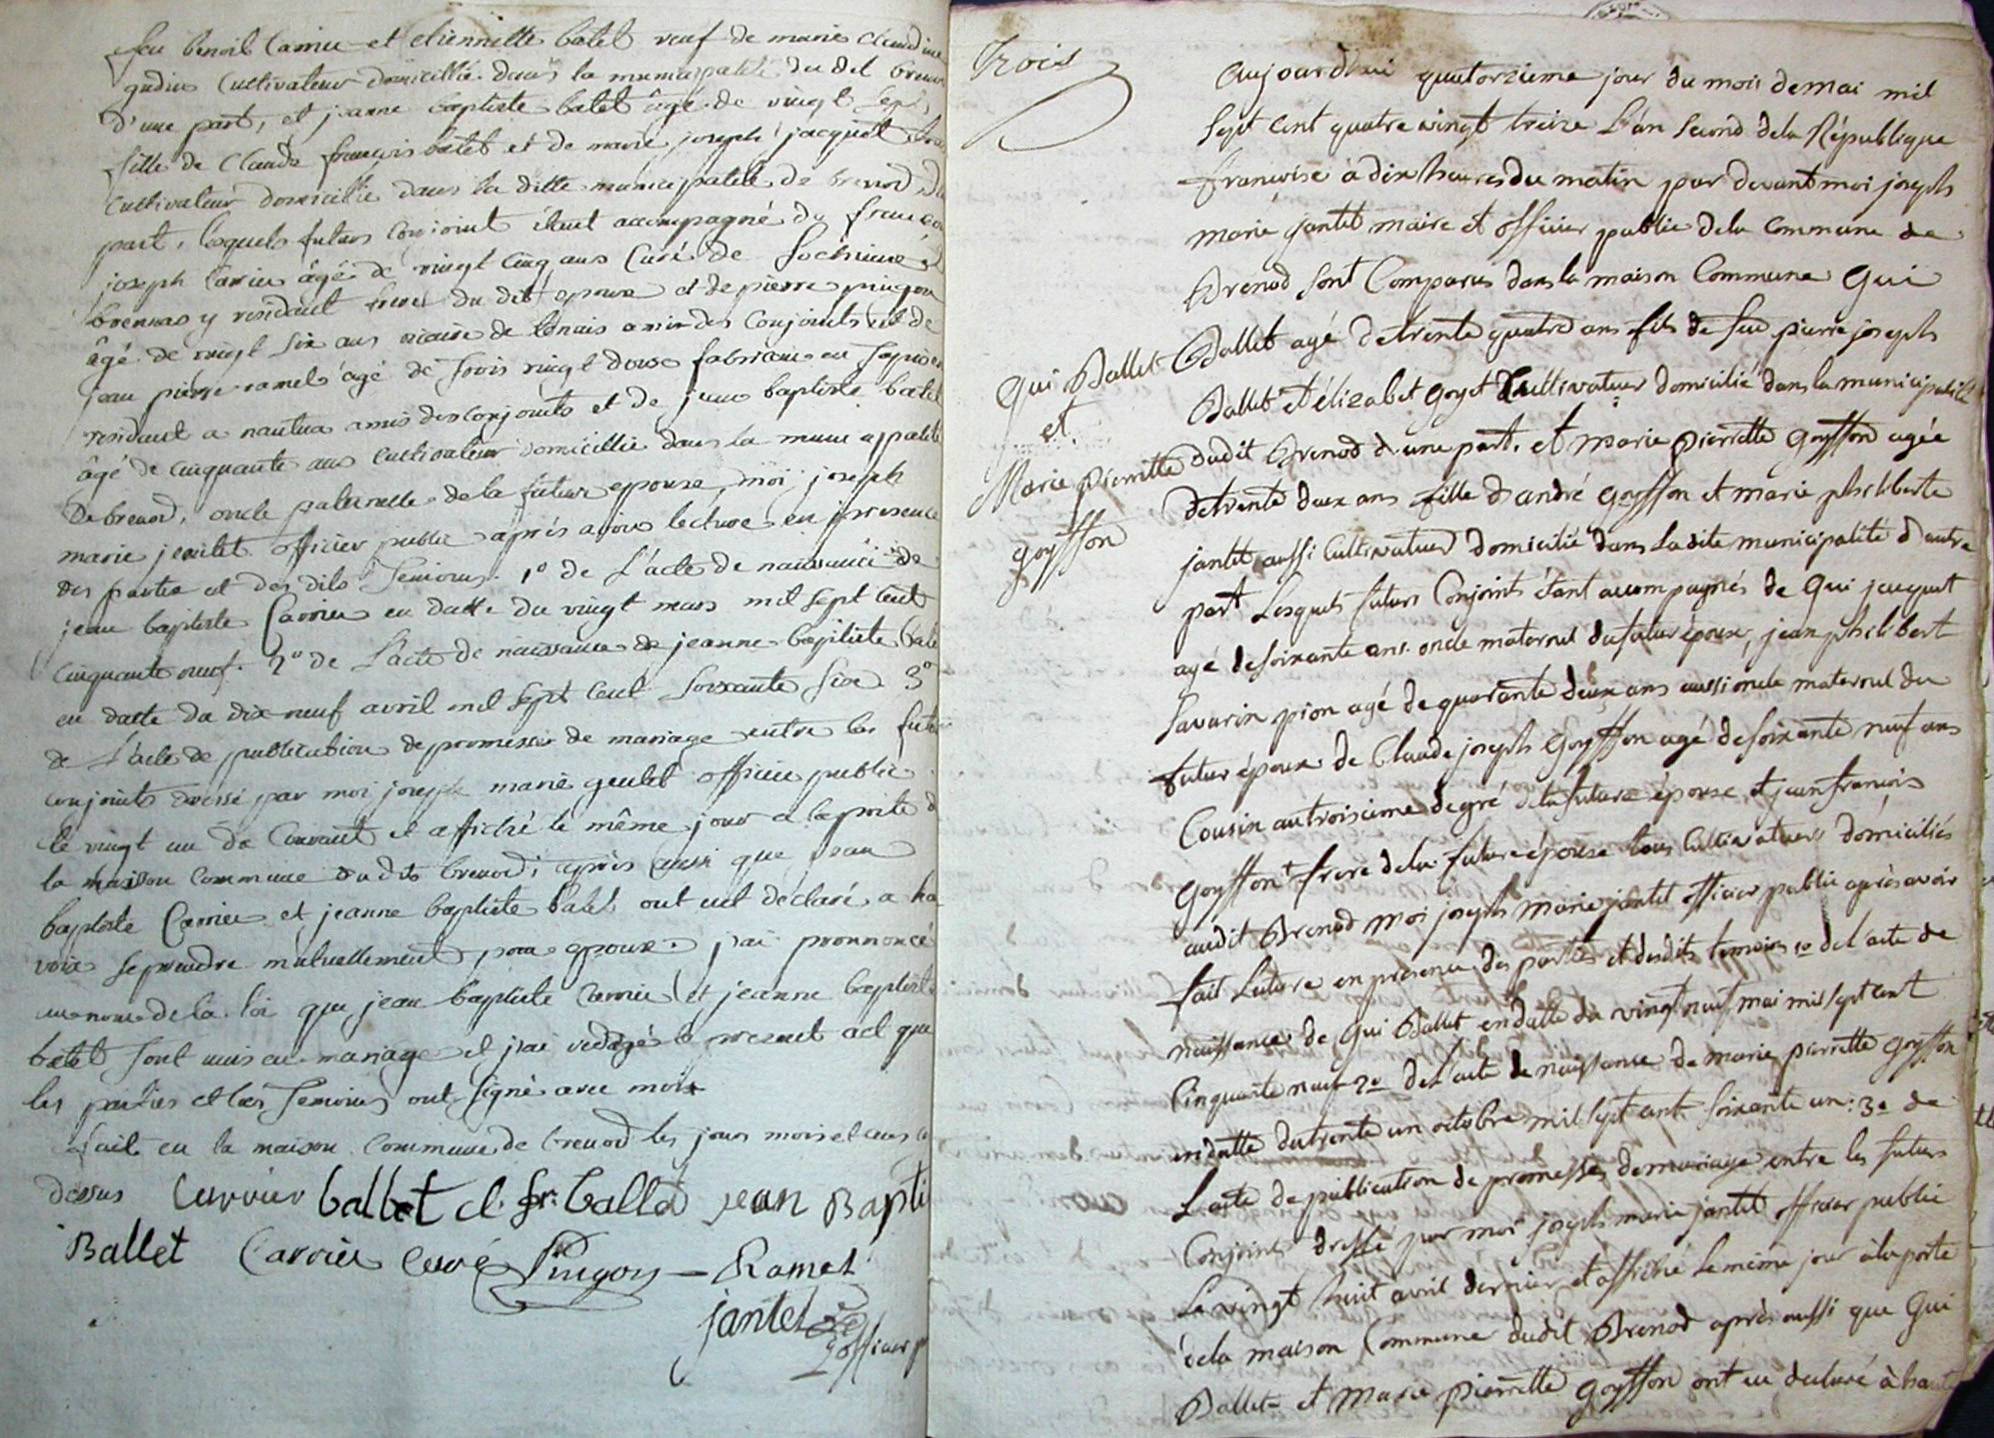 feu benoit Carrier et etiennette balet veuf de marie claudine
gudin Cultivateur domicillié dans la municipalité du dit brenod
d'une part, et jeanne baptiste balet âgé de vingt sept
fille de Claude françois balet et de marie joseph jacquet
cultivateur domicillie dans la ditte municipalité de brenod d'
part, lesquels futurs conjoint étant accompagné du francois
joseph Carrier âgé de vingt cinq ans Curé de
brennas y residant frere du dit epoux et de pierre pingon
âgé de vingt six ans vicaire de amis des conjoints et de
jean pierre ramel âgé de trois vingt douse fabricain en
residant a nantua amis des conjoints et de jean baptiste balet
âgé de cinquante ans cultivateur domicillie dans la municipalité
De brenod, oncle paternelle de la future epouse, moi joseph
marie jeantet officier public après avoir lecture en presence
des partie et des dits Temoins. 1° de L'acte de naissance de
jean baptiste Carrier en datte du vingt mars mil sept cent
cinquante neuf. 2° de L'acte de naissance de jeanne baptiste balet
en datte du dix neuf avril mil sept cent soixante six 3°
de L'acte de publication de promesse de mariage entre les futurs
conjoints dressé par moi joseph marie jeantet officier public
le vingt un du Courant et affiché le même jour a la porte d
la maison commune du dit brenod; après aussi que jean
baptiste Carrier et jeanne baptiste balet ont eut déclaré a haute
voix se prendre mutuellement pour epoux. j'ai prononcé
au nom de la loi que jean baptiste Carrier et jeanne baptiste
balet sont unis en mariage et j'ai redigé le present act que
les parties et les Temoins ont signé avec moi
fait en la maison commune de brenod les jours mois et ans ci
dessus Carrier ballet cl. fr. ballet jean Bapti
Ballet Carrier curé Pingon — Ramel
jantet
officier p
Trois
Aujourd'hui quatorzieme jour du mois de mai mil
sept cent quatre vingt treize L'an second de la République
françoise à dix heures du matin par devant moi joseph
marie jantet maire et officier public de la commune de
Brenod sont Comparus dans la maison Commune Gui
Gui Ballet
et
Marie Pierrette
goyffon
Ballet agé de trente quatre ans fils de feu pierre joseph
Ballet et élizabet goyet Cultivateur domicilié dans la municipalité
dudit Brenod d'une part. et marie pierrette goyffon agée
de trente deux ans fille d'andré goyffon et marie philiberte
jantet aussi Cultivateur domicilié dans la dite municipalité d'autre
part Lesquels futurs Conjoints étant accompagnés de Gui jacquet
agé de soixante ans oncle maternel du futur époux, jean philibert
savarin pion agé de quarante deux ans aussi oncle maternel du
futur époux de Claude joseph goyffon agé de soixante neuf ans
Cousin au troisieme degré de la future épouse et jean francois
goyffon frere de la future épouse tous Cultivateurs domiciliés
audit Brenod moi joseph marie jantet officier public après avoir
fait Lecture en presence des parties et desdits temoins 1° de l'acte de
naissance de Gui Ballet en datte du vingt neuf mai mil sept cent
Cinquante neuf 2° de l'acte de naissance de marie pierrette goyffon
en datte du trente un octobre mil sept cent soixante un: 3° de
L'acte de publication de promesses de mariage entre les futurs
Conjoints dressé par moi joseph marie jantet officier public
Le vingt huit avril dernier et affiché Le même jour à la porte
de la maison Commune dudit Brenod après aussi que Gui
Ballet et Marie pierrette goyffon ont eu declaré à haute